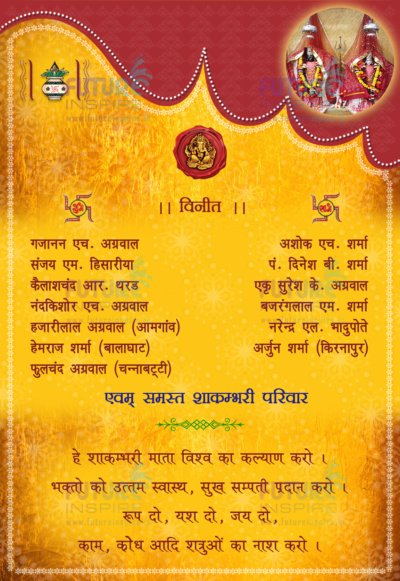 FUTURE
INSPIRE
।। विनीत ।।
गजानन एच. अग्रवाल
संजय एम. हिसारीया
कैलाशचंद आर. थरड
नंदकिशोर एच. अग्रवाल
हजारीलाल अग्रवाल (आमगांव)
हेमराज शर्मा (बालाघाट)
फुलचंद अग्रवाल (चन्नाबट्टी)
अशोक एच. शर्मा
पं. दिनेश बी. शर्मा
एकृ सुरेश के. अग्रवाल
बजरंगलाल एम. शर्मा
नरेन्द्र एल. भादुपोते
अर्जुन शर्मा (किरनापुर)
एवम् समस्त शाकम्भरी परिवार
हे शाकम्भरी माता विश्व का कल्याण करो ।
भक्तो को उत्तम स्वास्थ, सुख सम्पती प्रदान करो ।
रूप दो, यश दो, जय दो,
काम, क्रोध आदि शत्रुओं का नाश करो ।